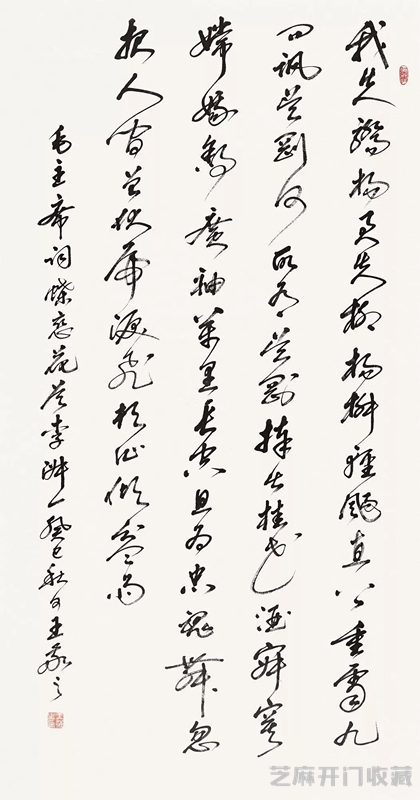 我失驕楊君失柳楊柳輕颺直上重霄九
问讯吴剛何所有吴剛捧出桂花酒寂寞
嫦娥舒廣袖萬里長空且为忠魂舞忽
报人间曾伏虎泪飛顿作倾盆雨
毛主席词蝶恋花答李淑一癸巳秋月王
芝麻开门收藏